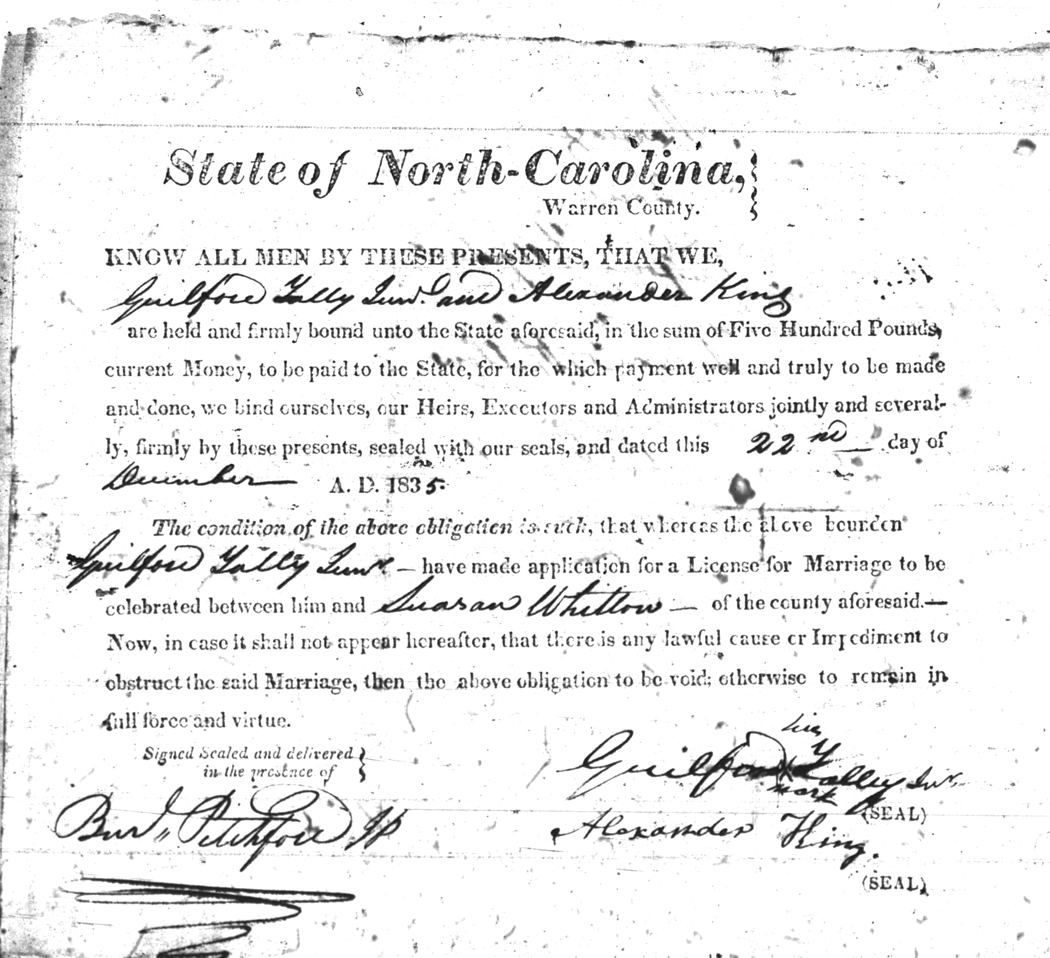 State of North-Carolina,
Warren County.
KNOW ALL MEN BY THESE PRESENTS, THAT WE,
Guilford Tally Junr. and Alexander King
are held and firmly bound unto the State aforesaid, in the sum of Five Hundred Pounds,
current Money, to be paid to the State, for the which payment well and truly to be made
and done, we bind ourselves, our Heirs, Executors and Administrators jointly and several-
ly, firmly by these presents, sealed with our seals, and dated this 22nd day of
December A. D. 1835.
The condition of the above obligation is such, that whereas the above bounden
Guilford Tally Junr. — have made application for a License for Marriage to be
celebrated between him and Suasan Whitlow — of the county aforesaid.—
Now, in case it shall not appear hereafter, that there is any lawful cause or Impediment to
obstruct the said Marriage, then the above obligation to be void; otherwise to remain in
full force and virtue.
Signed Sealed and delivered
in the presence of
his
Guilford X Tally Junr.
mark
(SEAL)
Pitchford JP
Alexander King.
(SEAL)